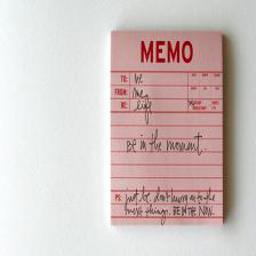 MEMO
TO: me
FROM: me
RE: life
Be in the moment.
PS: just be. don't hurry on to the
next thing. BE IN THE NOW.